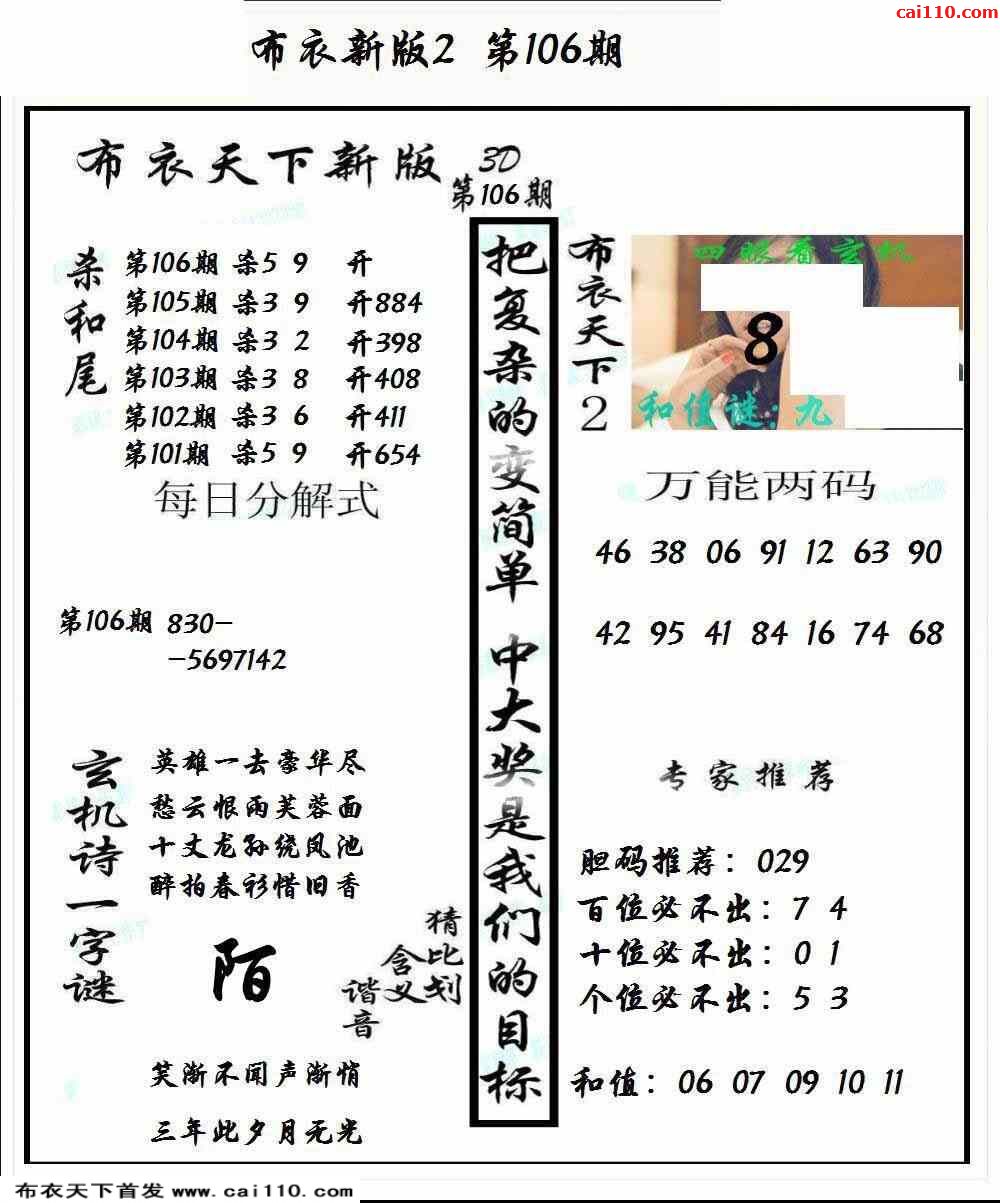 cai110.com
布衣新版2 第106期
布衣天下新版
3D
第106期
杀和尾
第106期 杀5 9 开
第105期 杀3 9 开884
第104期 杀3 2 开398
第103期 杀3 8 开408
第102期 杀3 6 开411
第101期 杀5 9 开654
每日分解式
第106期 830-
-5697142
玄机诗一字谜
英雄一去豪华尽
愁云恨雨芙蓉面
十丈龙孙绕凤池
醉拍春衫惜旧香
陌
猜比划
含义
谐音
笑渐不闻声渐悄
三年此夕月无光
把复杂的变简单 中大奖是我们的目标
布衣天下2
四眼看玄机
8
和值谜:九
万能两码
46 38 06 91 12 63 90
42 95 41 84 16 74 68
专家推荐
胆码推荐：029
百位必不出：7 4
十位必不出：0 1
个位必不出：5 3
和值：06 07 09 10 11
布衣天下首发 www.cai110.com